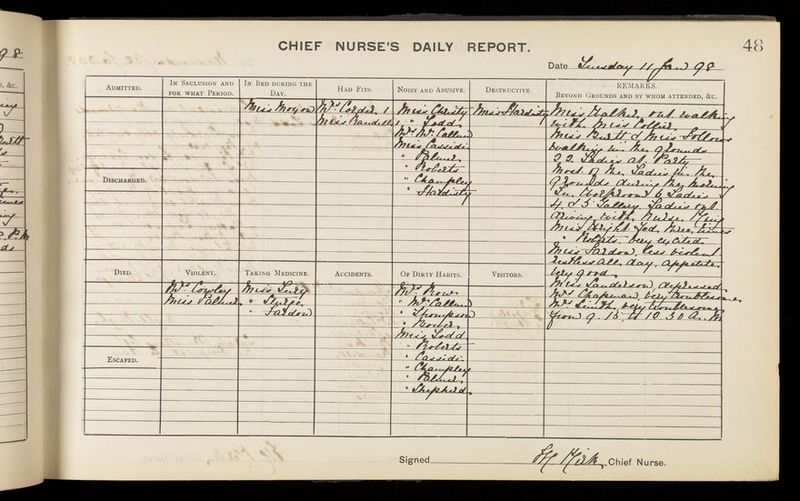 98
48
CHIEF NURSE'S DAILY REPORT.
Date Tuesday 11 Jan 98
Admitted.
In Seclusion and for what Period.
In Bed during the Day.
Miss Moyon
Had Fits.
Mrs Corder 1
Miss Randell 1
Noisy and Abusive.
Miss Christy
" Todd
Mrs McCallum
Miss Cassidi
" Palmer
" Roberts
" Champley
" Hardisty
Destructive.
Miss Hardisty
REMARKS.
Beyond Grounds and by whom attended, &c.
Miss Walker out walking
with Miss Collier
Miss Burtt & Miss Fellows
walking in the grounds
22 Ladies at Party
Most of the Ladies in the
grounds during the morning
6 Ladies
4 & 5 Gallery Ladies out
driving with Nurse King
Miss Wright fed three times
" Roberts very excited
Miss Fardon, less violent
restless all day, appetite
very good
Miss Sanderson, depressed
Mrs Chapman, very troublesome
Mrs Smith, very troublesome
from 9.15 to 10.30 A.M
Discharged.
Died.
Violent.
Mrs Cowley
Miss Palmer
Taking Medicine.
Miss Lury
" Sturge
" Fardon
Accidents.
Of Dirty Habits.
Mrs Row
" McCallum
" Thompson
" Bower
Miss Todd
" Roberts
" Cassidi
" Champley
" Palmer
" Shepherd
Visitors.
Escaped.
Signed Kirk, Chief Nurse.